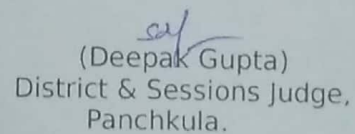 sd/
(Deepak Gupta)
District & Sessions Judge,
Panchkula.